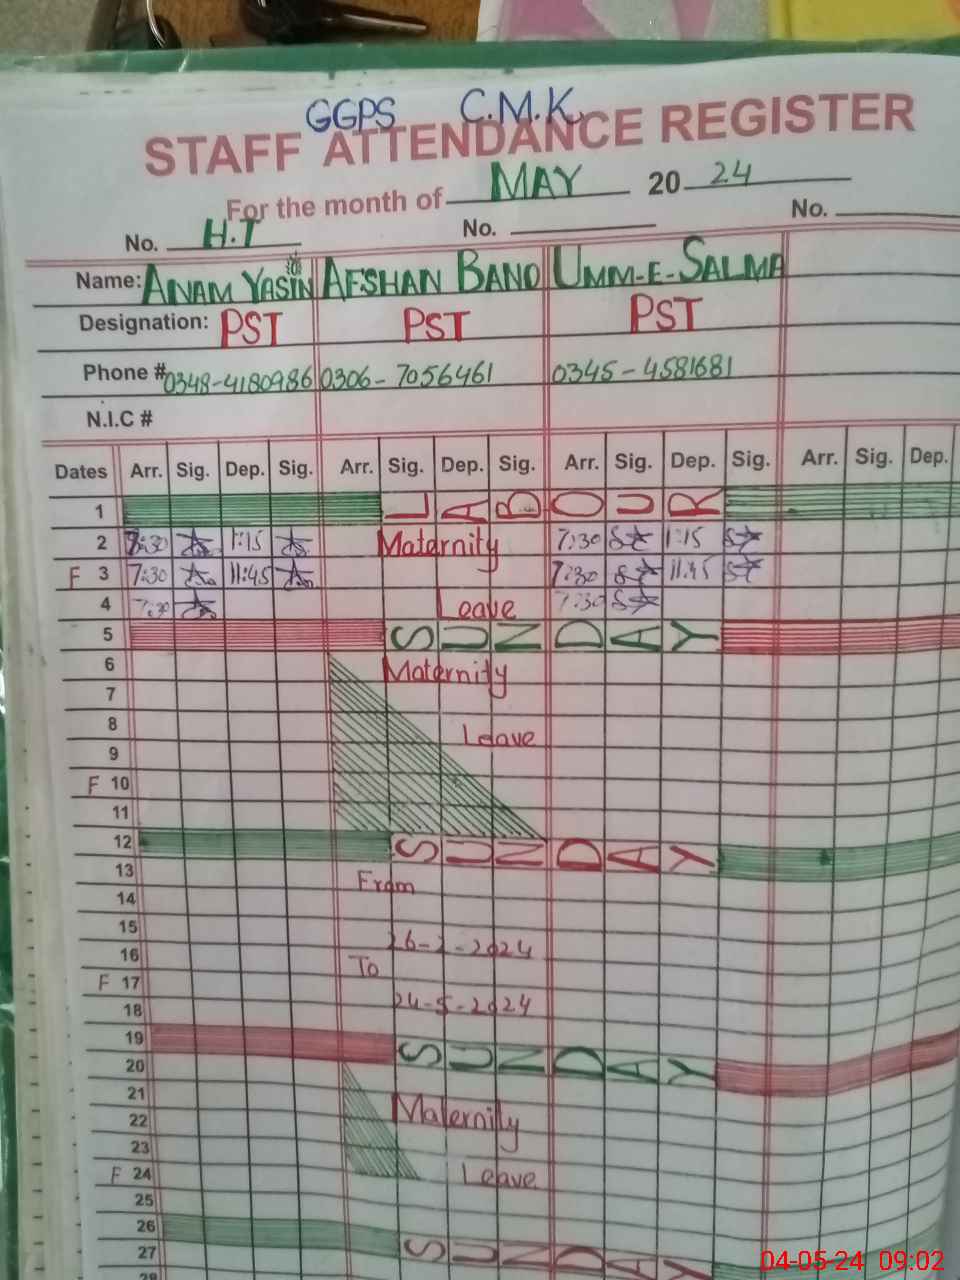 GGPS C.M.K.
STAFF ATTENDANCE REGISTER
For the month of MAY 20 24
No. H.T No. No.
Name: ANAM YASIN AFSHAN BANO UMM-E-SALMA
Designation: PST PST PST
Phone # 0348-4180986 0306-7056461 0345-4581681
N.I.C #
Dates Arr. Sig. Dep. Sig. Arr. Sig. Dep. Sig. Arr. Sig. Dep. Sig. Arr. Sig. Dep.
1 LABOUR
2 7:30 1:15 Maternity 7:30 1:15
F 3 7:30 11:45 7:30 11:45
4 7:30 Leave 7:30
5 SUNDAY
6 Maternity
7
8 Leave
9
F 10
11
12 SUNDAY
13 From
14
15 26-2-2024
16 To
F 17
18 24-5-2024
19 SUNDAY
20
21
22 Maternity
23
F 24 Leave
25
26 SUNDAY
27
28
04-05-24 09:02